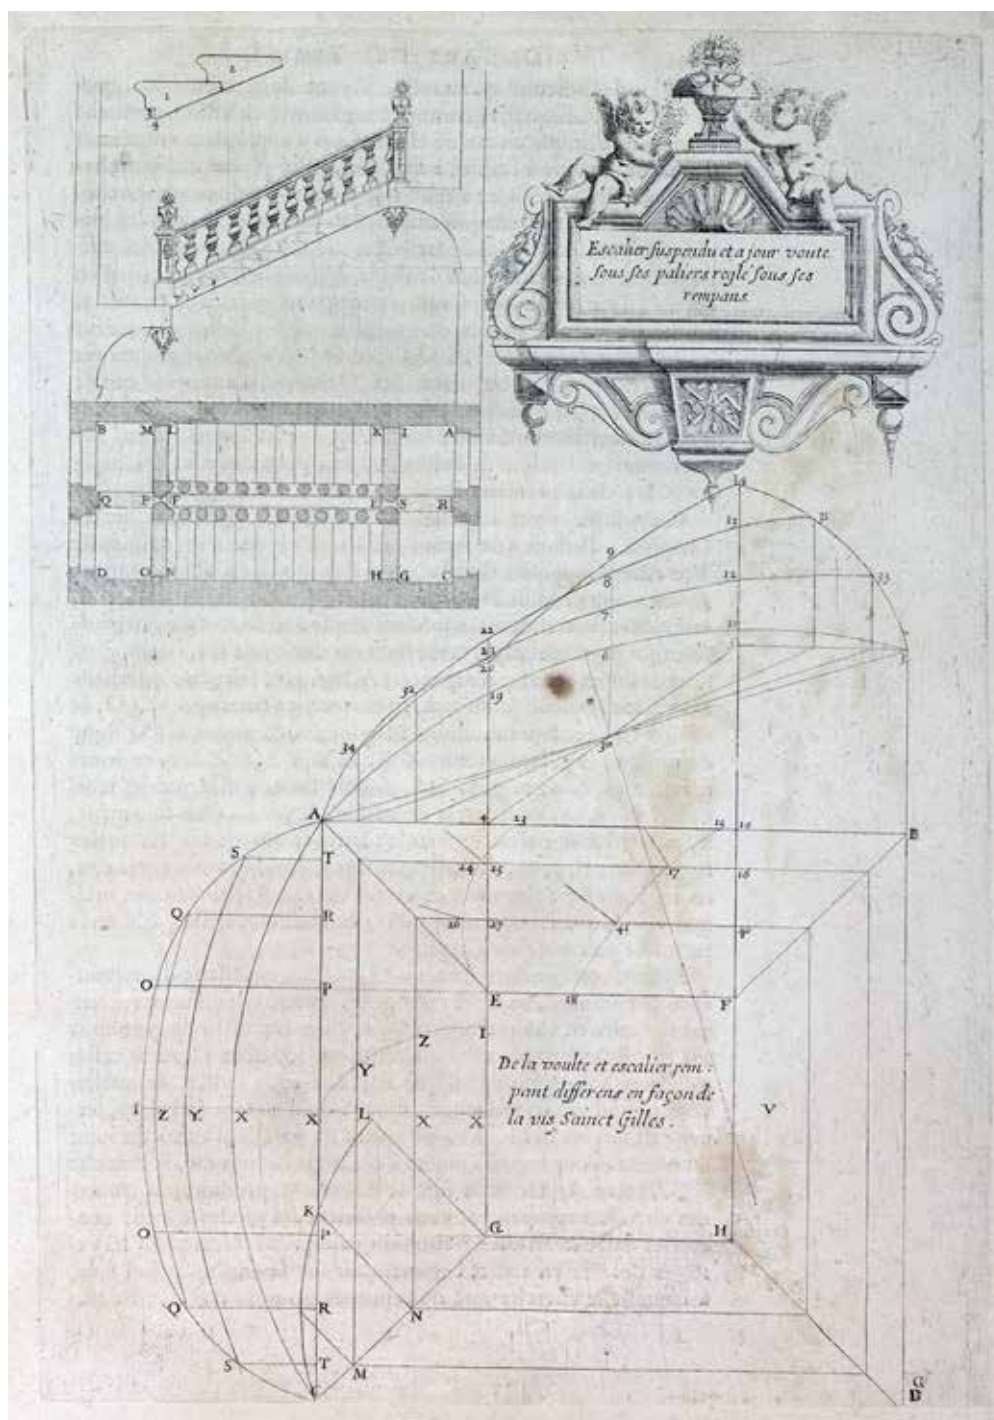 2
1
4
Escalier suspendu et a jour voute
sous ses paliers reglé sous ses
rempans
B M L K I A
Q P F E S R
D O N H G C
14
13 31
9
8 12 33
7
22
21
20
32 19
34 30
A 4 13 15 10 B
S T 24 25 17 16
Q R 26 27 41 40
O P E 18 F
I
Z
De la voulte et escalier rem :
pant differens en façon de
la vis Sainct Gilles .
Y
I Z Y X X L X X V
K G H
O P
Q R N
S T M
C G
D